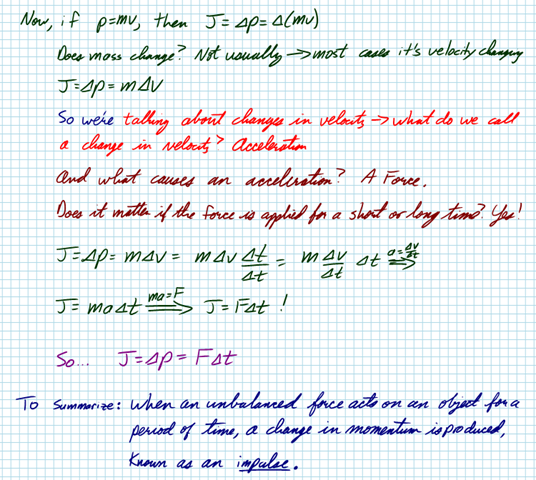 Now, if p=mv, then J=Δp=Δ(mv)
Does mass change? Not usually → most cases it's velocity changing
J=Δp=mΔv
So we're talking about changes in velocity → what do we call
a change in velocity? Acceleration
And what causes an acceleration? A Force.
Does it matter if the force is applied for a short or long time? Yes!
J=Δp=mΔv = mΔv Δt/Δt = m Δv/Δt Δt a=Δv/Δt ⟹
J=maΔt ma=F ⟹ J=FΔt !
So... J=Δp=FΔt
To summarize: When an unbalanced force acts on an object for a
period of time, a change in momentum is produced,
known as an impulse.